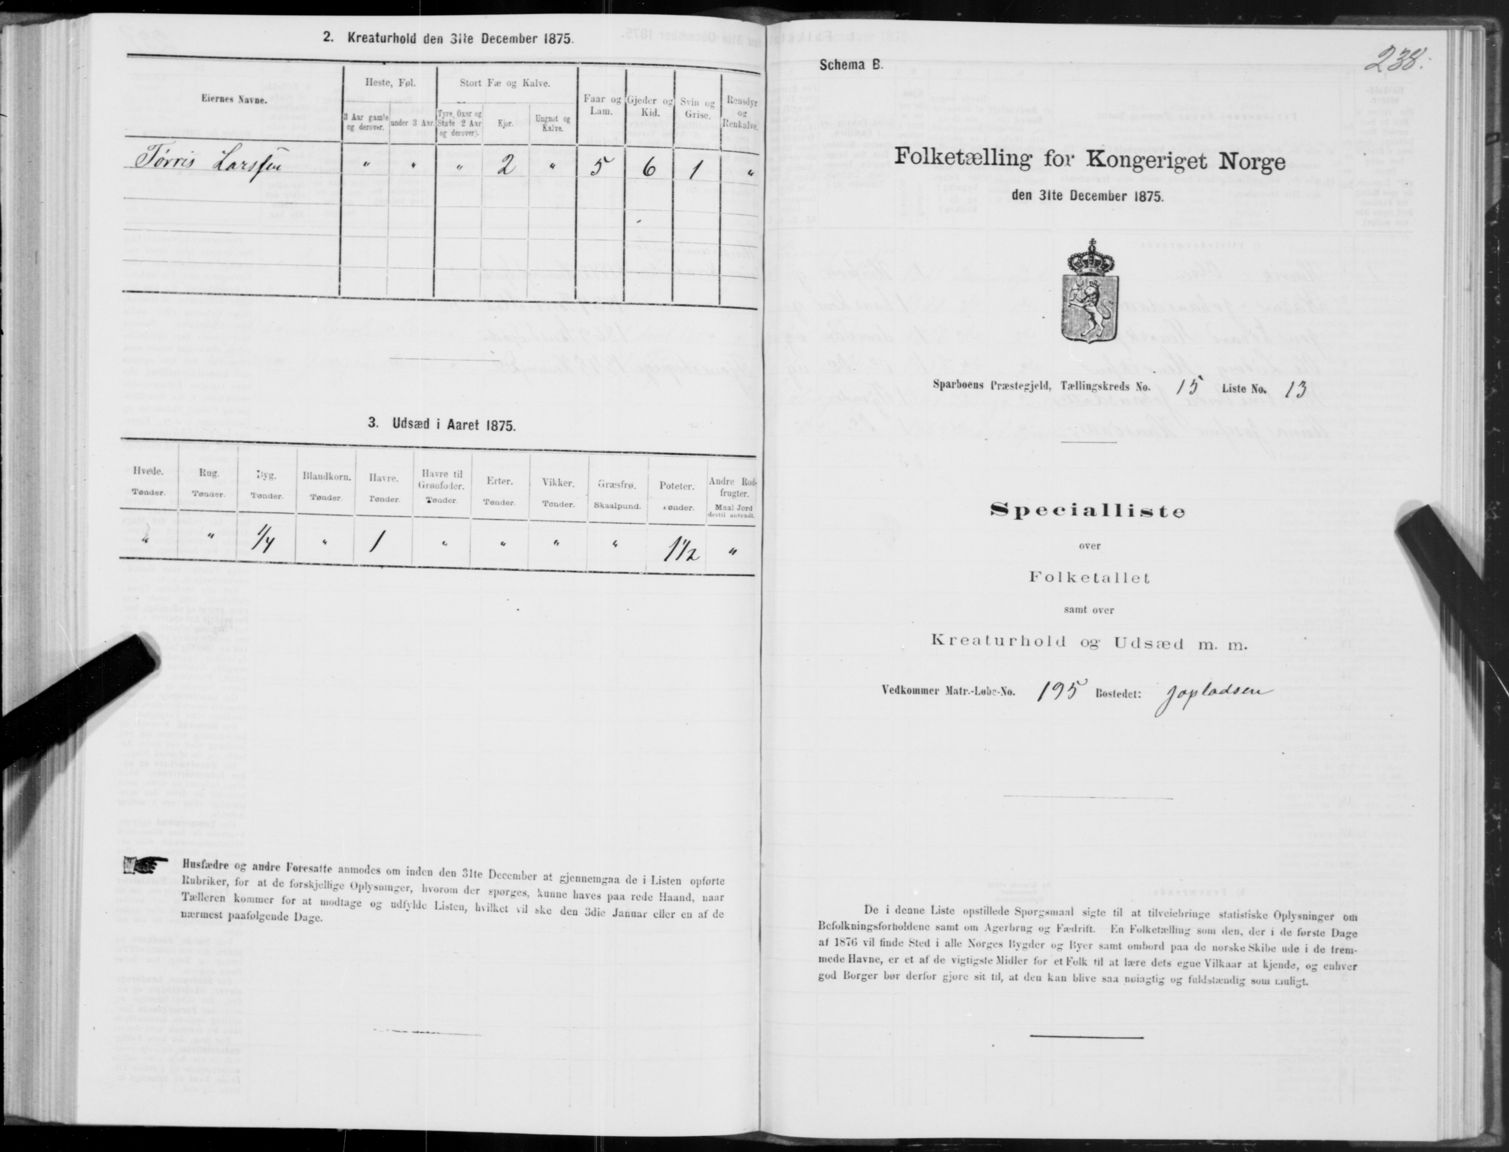 2. Kreaturhold den 31te December 1875.
Eiernes Navne.
Heste, Føl.
Stort Fæ og Kalve.
Faar og Lam.
Gjeder og Kid.
Svin og Grise.
Rensdyr og Renkalve.
3 Aar gamle og derover.
under 3 Aar.
Tyre, Oxer og Stude 2 Aar og derover).
Kjør.
Ungnøt og Kalve.
Tørris Larssen " " " 2 " 5 6 1 "
3. Udsæd i Aaret 1875.
Hvede. Rug. Byg. Blandkorn. Havre. Havre til Grønfoder. Erter. Vikker. Græsfrø. Poteter. Andre Rodfrugter.
Tønder. Tønder. Tønder. Tønder. Tønder. Tønder. Tønder. Tønder. Skaalpund. Tønder. Maal Jord dertil anvendt.
" " 1/4 " 1 " " " " 1 1/2 "
Husfædre og andre Foresatte anmodes om inden den 31te December at gjennemgaa de i Listen opførte
Rubriker, for at de forskjellige Oplysninger, hvorom der spørges, kunne haves paa rede Haand, naar
Tælleren kommer for at modtage og udfylde Listen, hvilket vil ske den 3die Januar eller en af de
nærmest paafølgende Dage.
238.
Schema B.
Folketælling for Kongeriget Norge
den 31te December 1875.
Sparboens Præstegjeld, Tællingskreds No. 15 Liste No. 13
Specialliste
over
Folketallet
samt over
Kreaturhold og Udsæd m. m.
Vedkommer Matr.-Løbe-No. 195 Bostedet: Japladsen
De i denne Liste opstillede Spørgsmaal sigte til at tilveiebringe statistiske Oplysninger om
Befolkningsforholdene samt om Agerbrug og Fædrift. En Folketælling som den, der i de første Dage
af 1876 vil finde Sted i alle Norges Bygder og Byer samt ombord paa de norske Skibe ude i de frem-
mede Havne, er et af de vigtigste Midler for et Folk til at lære dets egne Vilkaar at kjende, og enhver
god Borger bør derfor gjøre sit til, at den kan blive saa nøiagtig og fuldstændig som muligt.